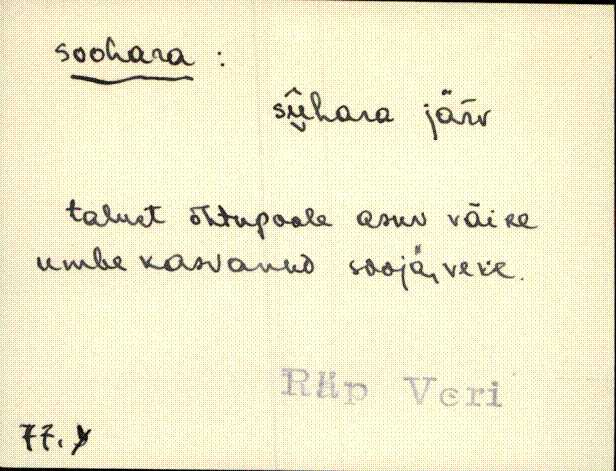 soohara :
sṳ̂hara järv
talust õhtupoole asuv väike
umbe kasvanud soojä, veke.
Räp Veri
77. y